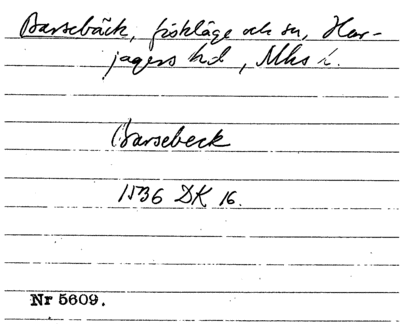 Barsebäck, fiskläge och sn, Har-
jagers hd, Mhs l.
Barsebeck
1536 DK 16.
Nr 5609.